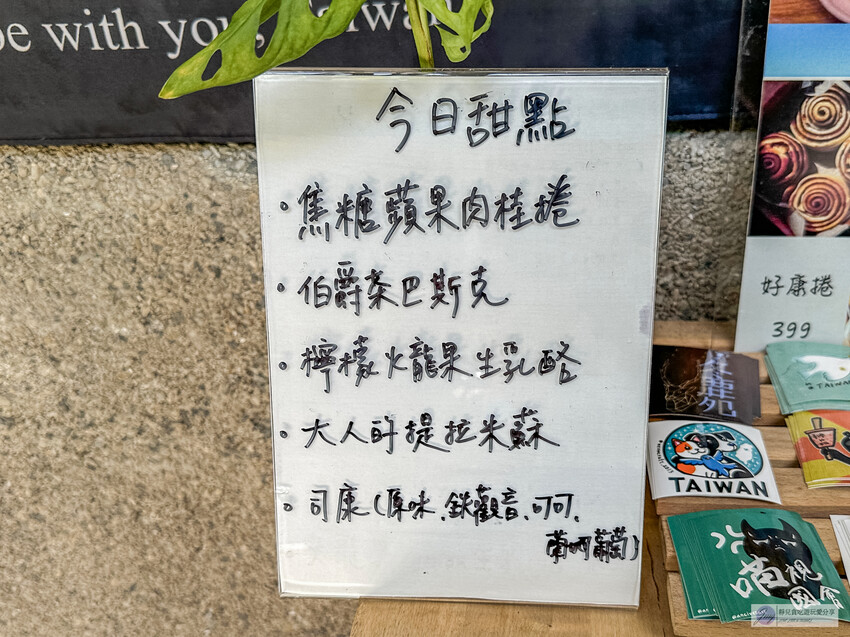 be with you, Taiwan
今日甜點
•焦糖蘋果肉桂捲
•伯爵茶巴斯克
•檸檬火龍果生乳酪
•大人的提拉米蘇
•司康(原味、鐵觀音、可可、
葡萄)
好康捲
399
TAIWAN
TAIWAN
喃
靜兒貪吃遊玩愛分享